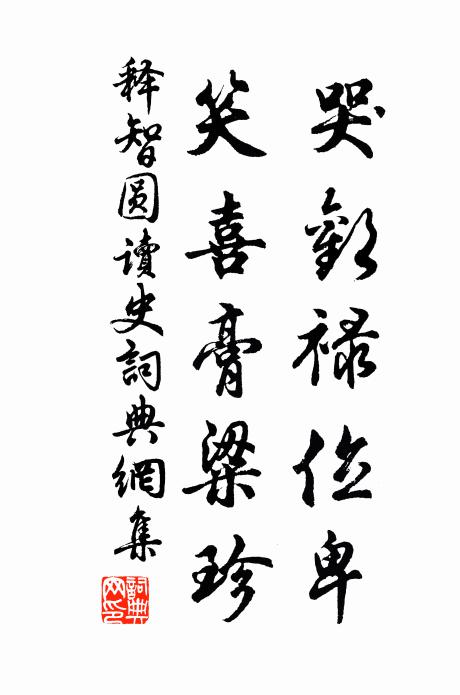 哭歎禄位卑
笑喜膏粱珍
释智圆讀史詞典網集
詞典
网印